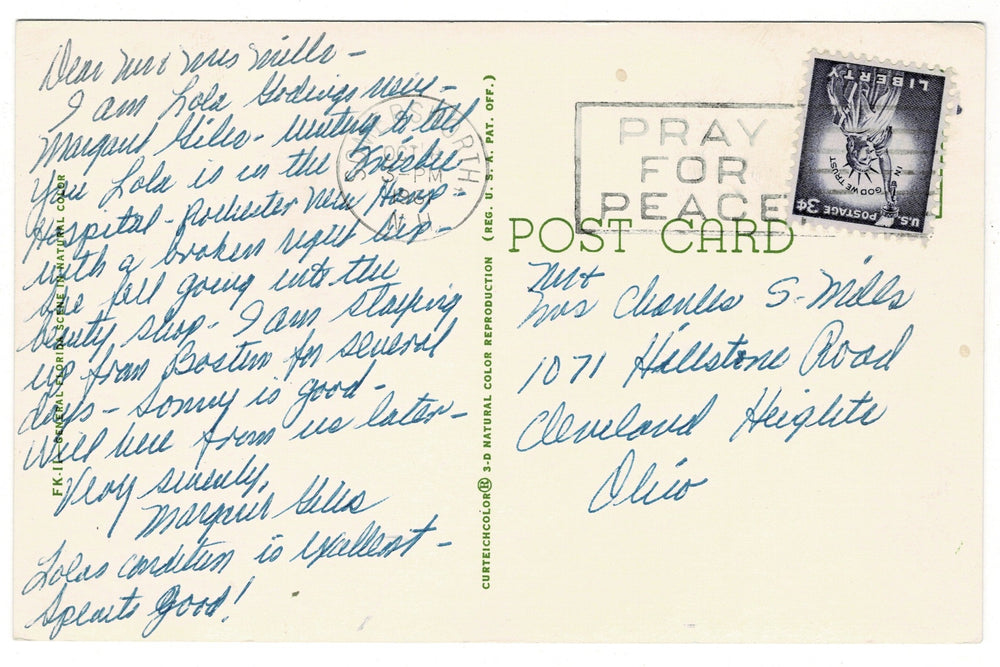 Dear Mr & Mrs Mills -
I am Lola Godings niece -
Margaret Giles - writing to tell
you Lola is in the Frisbie
Hospital - Rochester New Hamp -
with a broken right hip -
She fell going into the
beauty shop - I am staying
up from Boston for several
days - Sonny is good -
Will hear from us later -
Very sincerely,
Margaret Giles
Lolas condition is excellent -
Spirits Good!
FK-11-GENERAL FLORIDA SCENE IN NATURAL COLOR
CURTEICHCOLOR® 3-D NATURAL COLOR REPRODUCTION (REG. U. S. A. PAT. OFF.)
OCT
PM
N H
PRAY
FOR
PEACE
LIBERTY
IN GOD WE TRUST
U.S. POSTAGE 3¢
POST CARD
Mr &
Mrs Charles S. Mills
1071 Hillstone Road
Cleveland Heights
Ohio